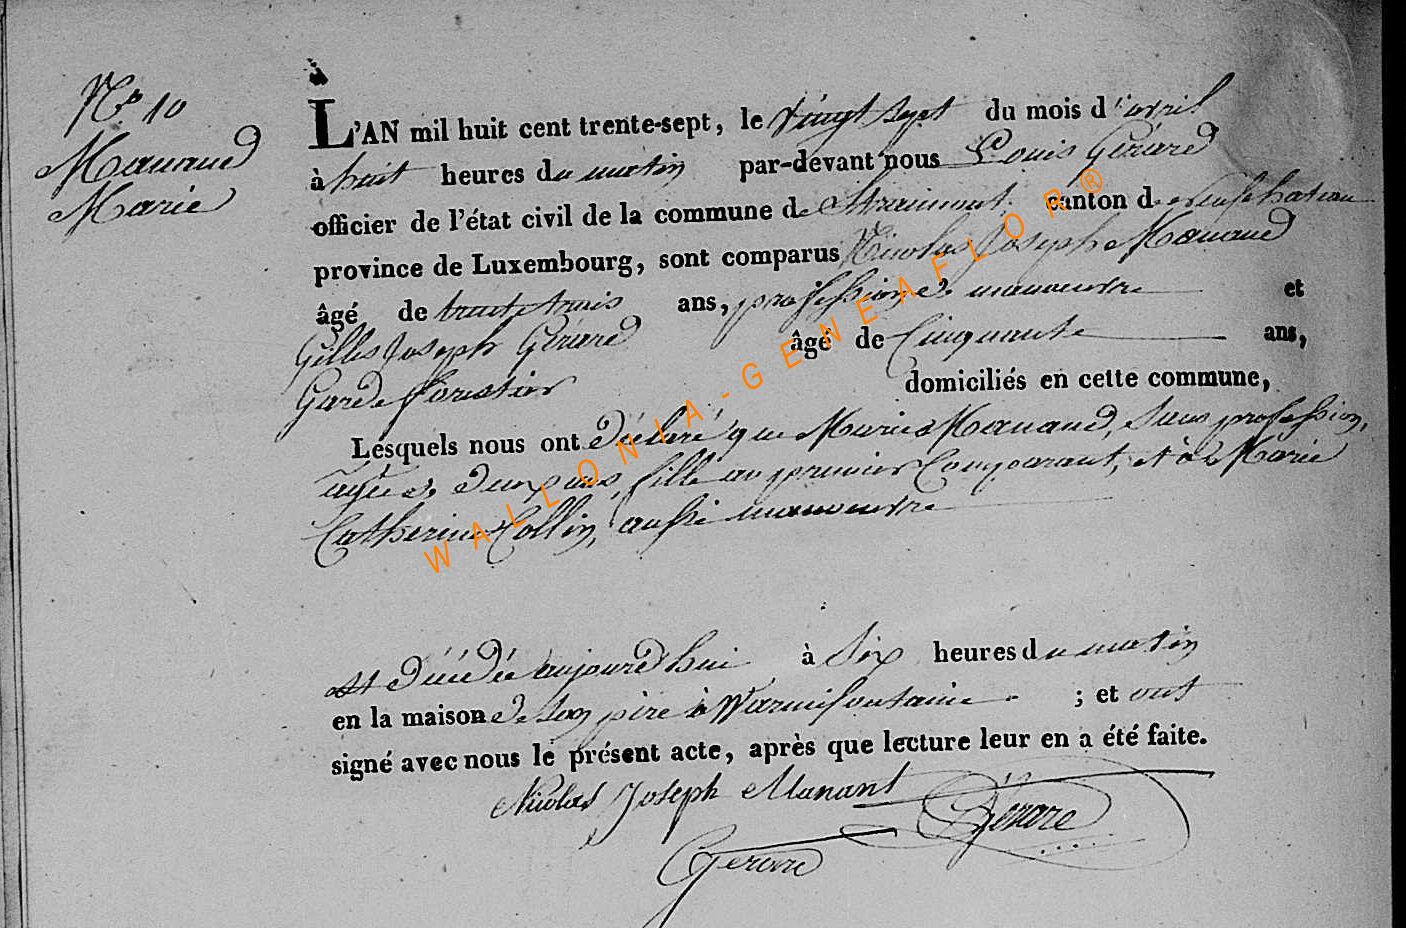 N.° 10
Manand
Marie
L'AN mil huit cent trente-sept, le vingt sept du mois d'avril
à huit heures du matin par-devant nous Louis Gérard
officier de l'état civil de la commune de Straimont canton de neufchateau
province de Luxembourg, sont comparus Nicolas Joseph Manand
âgé de trente trois ans, profession de manoeuvre et
Gilles Joseph Gérard âgé de Cinquante ans,
Garde forestier domiciliés en cette commune,
Lesquels nous ont déclaré que Marie Manand, sans profession,
agée de deux ans, fille au premier Comparant, et à Marie
Catherine Collin, aussi manoeuvre
est décédée aujourd'hui à Six heures du matin
en la maison de son père à Warmifontaine ; et ont
signé avec nous le présent acte, après que lecture leur en a été faite.
Nicolas Joseph Manant Gérard
Gerard
WALLONIA-GENEAFLOR®